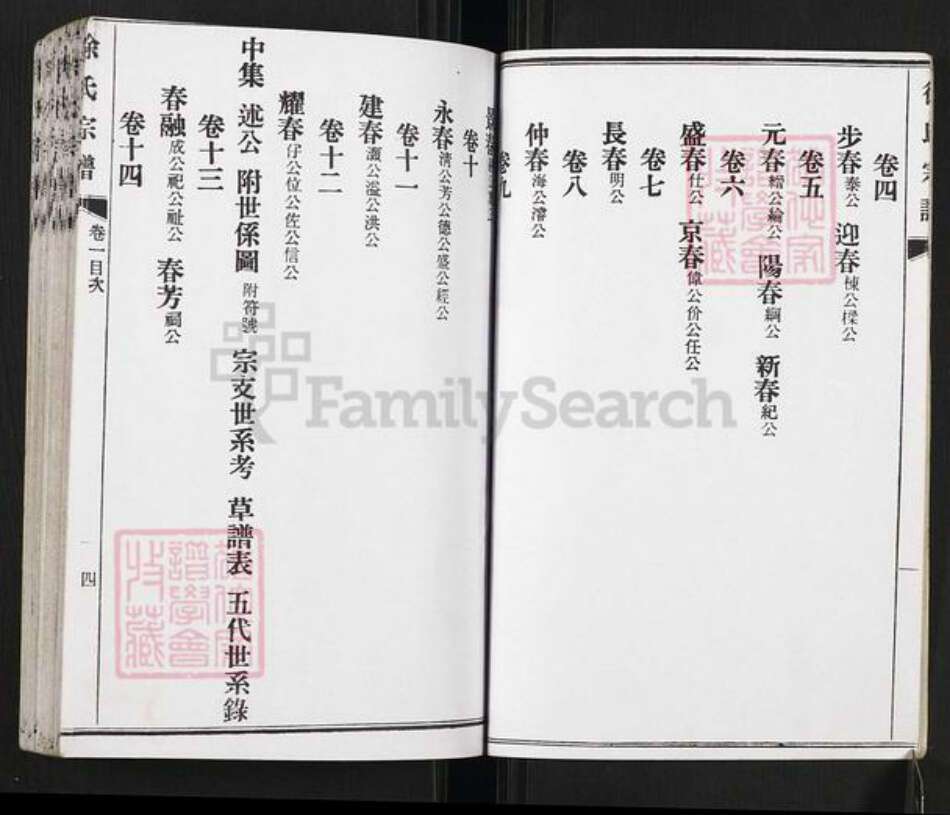 卷四
步春 泰公 迎春 棟公樑公
卷五
元春 縉公綸公 陽春 綱公 新春 紀公
卷六
盛春 仕公 京春 偉公份公任公
卷七
長春 明公
卷八
仲春 海公濬公
卷九
卷十
永春 清公芳公德公盛公經公
卷十一
建春 灝公溢公洪公
卷十二
耀春 仔公位公佐公信公
中集 述公 附世係圖 附符號 宗支世系考 草譜表 五代世系錄
卷十三
春融 成公祀公祉公 春芳 祠公
卷十四
徐氏宗譜 卷一目次 四
FamilySearch
譜學會
收藏